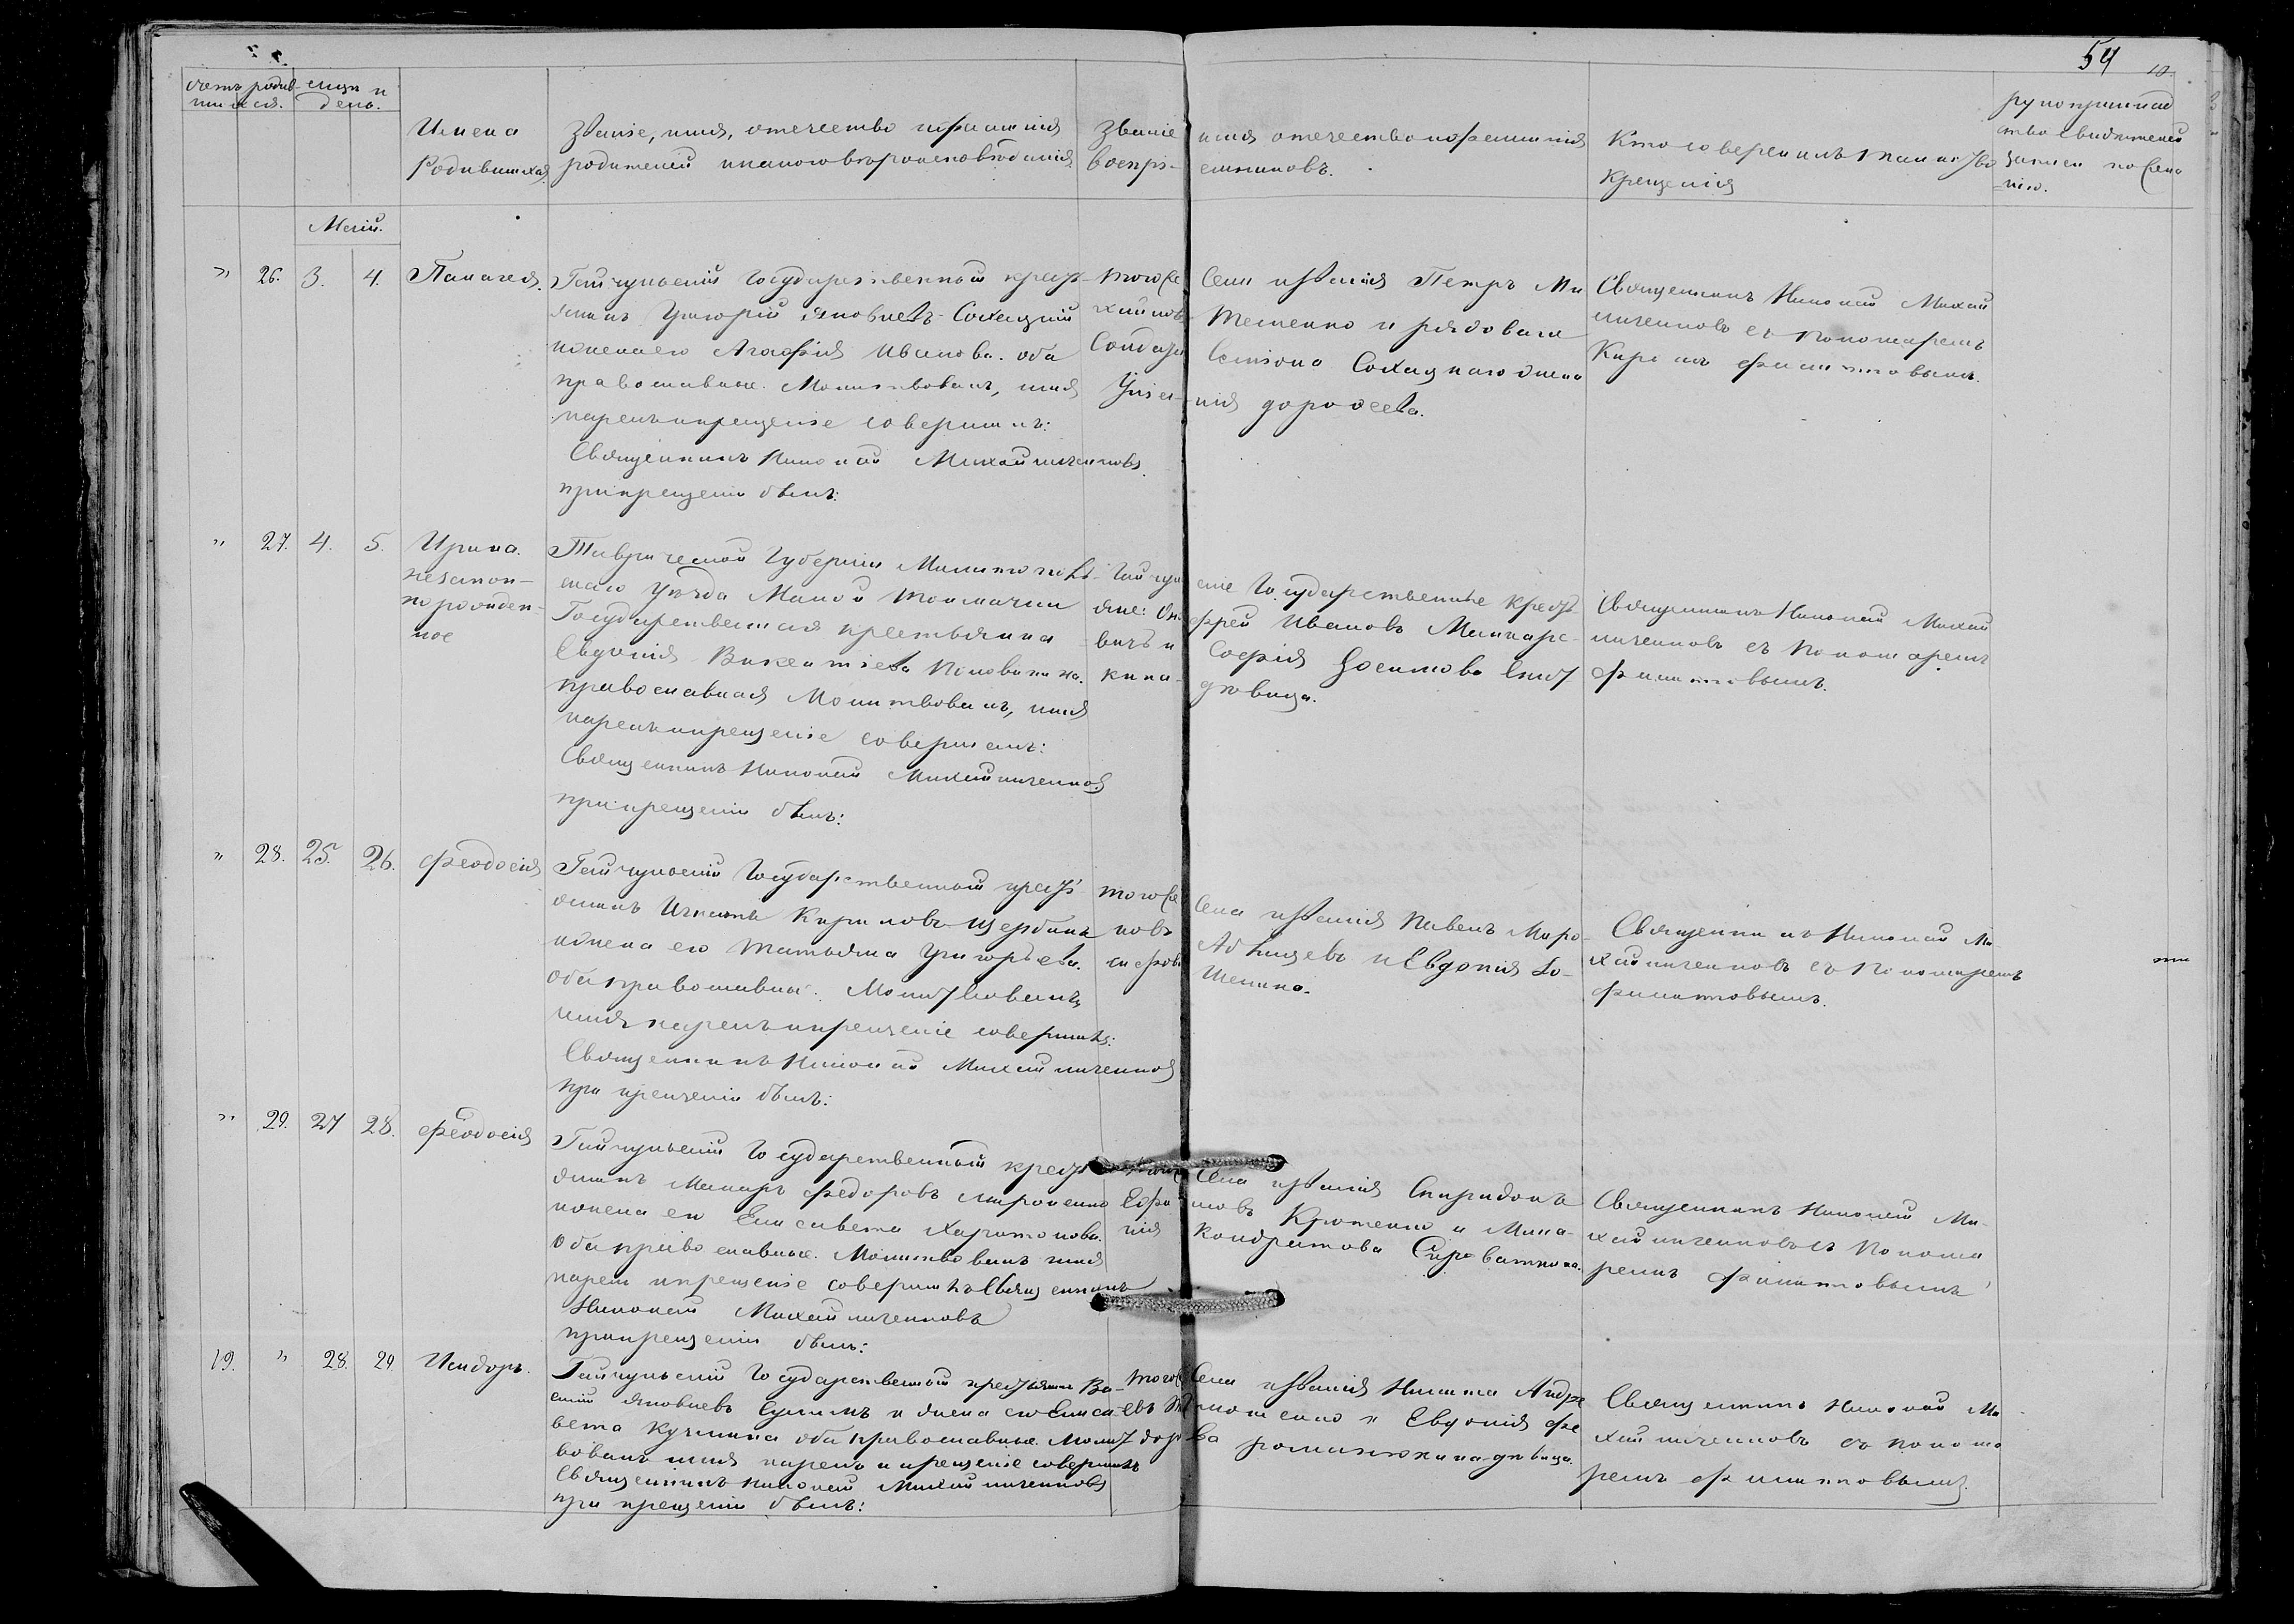 54
10.
счетъ родив-
шихся.
месяцъ и
день.
Имена
Родившихся
Званіе, имя, отечество и фамилія
родителей и какого вѣроисповѣданія
Званіе имя отечество и фамилія
воспрі-емниковъ.
Кто совершилъ таинство
крещенія
рукоприклад
ство свидѣтелей
записи по жела
нію.
Маій.
" 26. 3. 4. Пелагея.
Гайчульскій Государственный кресть-
янинъ Григорій Яковлевъ Сахацкій
и жена его Агафія Иванова. оба
православные. Молитвовалъ, имя
нарекъ и крещеніе совершилъ:
Священникъ Николай Михайличенковъ
при крещеніи былъ:
того Села и званія Петръ Ми
хайловъ Тетенко и рядоваго
Солдата Семіона Сахацкаго жена
Дороѳеева.
Священникъ Николай Михай
личенковъ съ Пономаремъ
Кириломъ Филиповымъ.
" 27. 4. 5. Ирина.
незакон-
норожден-
ное
Таврической Губерніи Мелитополь-
скаго Уѣзда Малой Токмачки
Государственная крестьянка
Евдокія Викентіева Половинка.
православная Молитвовалъ, имя
нарекъ и крещеніе совершилъ:
Священникъ Николай Михайличенковъ
при крещеніи былъ:
Гайчульскіе Государственные кресть
яне: Онуфрей Ивановъ
вичъ и Софія
дѣвица.
Священникъ Николай Михай
личенковъ съ Пономаремъ
Филиповымъ.
" 28. 25. 26. Феодосія
Гайчульскій Государственный кресть
янинъ Игнатъ Кириловъ Щербина
и жена его Татьяна Григорьева.
оба православные. Молитвовалъ,
имя нарекъ и крещеніе совершилъ:
Священникъ Николай Михайличенковъ
при крещеніи былъ:
того Села и званія Павелъ Миро
новъ и Евдокія
Священникъ Николай Ми-
хайличенковъ съ Пономаремъ
Филиповымъ.
" 29. 27 28. Феодосія
Гайчульскій Государственный кресть
янинъ Макаръ Федоровъ Мироненко
и жена его Елисавета Харитонова.
Оба православные. Молитвовалъ имя
нарекъ и крещеніе совершилъ Священникъ
Николай Михайличенковъ
при крещеніи былъ:
того Села и званія Спиридонъ
Кондратова Сироваткина.
Священникъ Николай Ми-
хайличенковъ съ Понома
ремъ Филиповымъ
19. " 28. 29 Исидоръ.
Гайчульскій Государственный крестьянинъ Ва-
силій Яковлевъ и жена его Елиса-
вета Кузмина оба православные. Молит
вовалъ имя нарекъ и крещеніе совершилъ
Священникъ Николай Михайличенковъ
при крещеніи былъ:
того Села и званія Никита Андре
евъ и Евдокія Фе
дорова Романюкина дѣвица.
Священникъ Николай Ми-
хайличенковъ съ Понома
ремъ Филиповымъ.